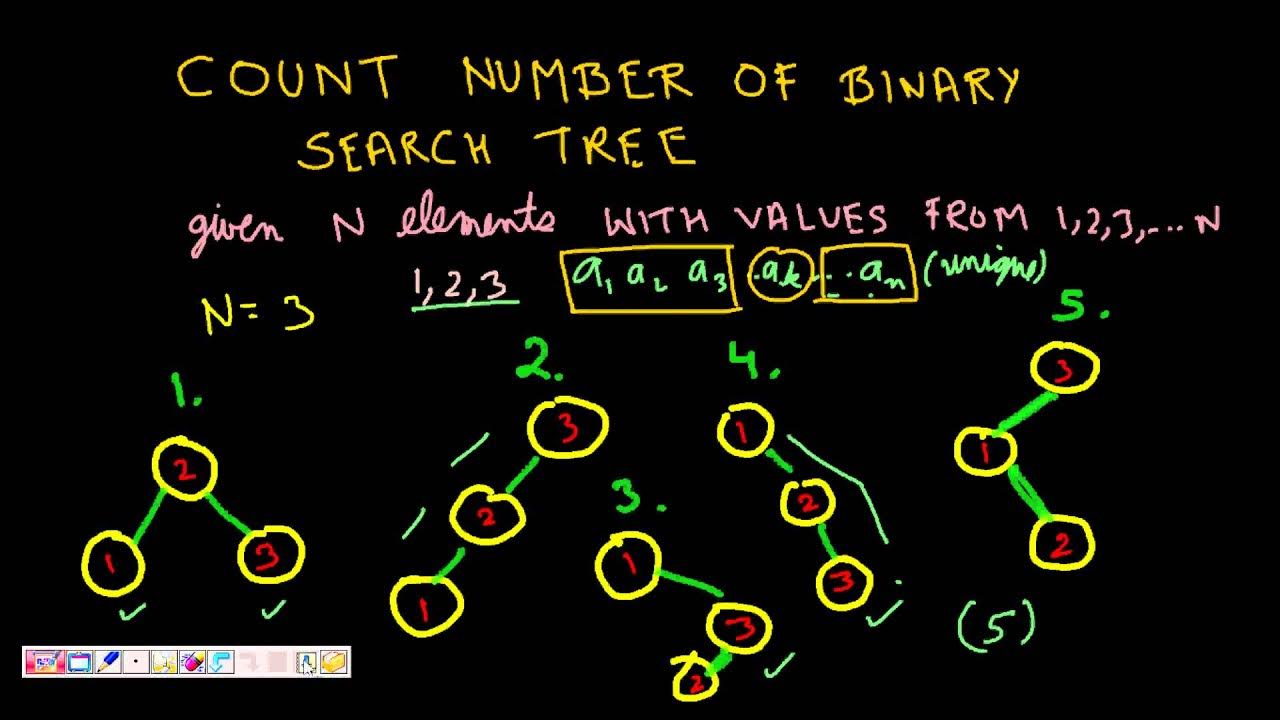 COUNT NUMBER OF BINARY
SEARCH TREE
given N elements WITH VALUES FROM 1,2,3,... N
1,2,3 a1 a2 a3 ..ak... .. an (unique)
N= 3
5.
2. 4.
1.
3
3 1
1
2
2 2
3.
1 3 1 3 2
1
3
2
(5)